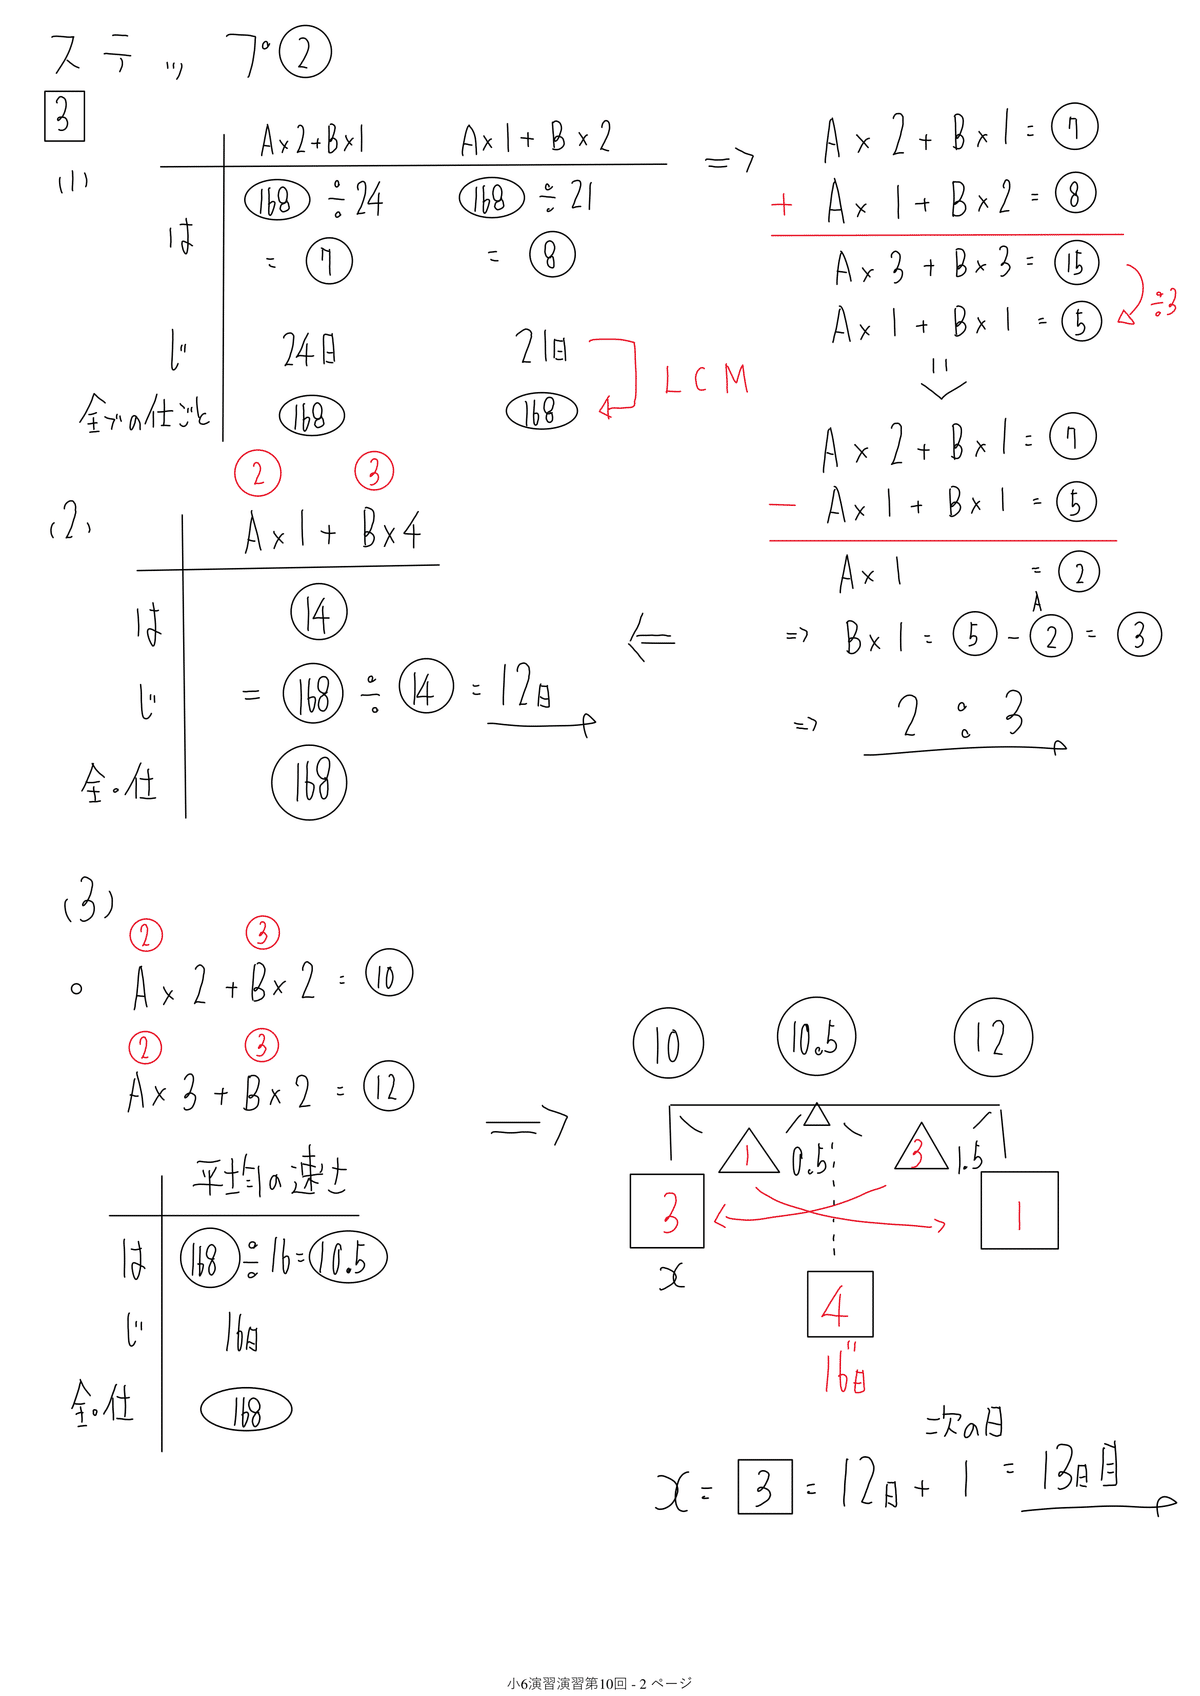 ステップ②
3
(1)
A×2+B×1 A×1+B×2
は ⑯⑧÷24 ⑯⑧÷21
=⑦ =⑧
じ 24日 21日
LCM
全ての仕ごと 168 168
⇒ A×2+B×1=⑦
+ A×1+B×2=⑧
A×3+B×3=⑮
÷3
A×1+B×1=⑤
A×2+B×1=⑦
- A×1+B×1=⑤
A×1 =②
A
⇒ B×1=⑤-②=③
⇒ 2:3
(2)
② ③
A×1+B×4
は ⑭
じ =168÷⑭=12日
全・仕 168
⇐
(3)
② ③
○ A×2+B×2=⑩
② ③
A×3+B×2=⑫
平均の速さ
は 168÷16=10.5
じ 16日
全・仕 168
⇒
10 10.5 12
1 0.5 3 1.5
3 1
x
4
16日
次の日
x=3=12日+1=13日目
小6演習演習第10回 - 2 ページ